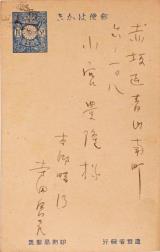 郵便はがき
赤坂区青山南町
六ノ一〇八
小宮豊隆様
本郷曙町
寺田寅彦